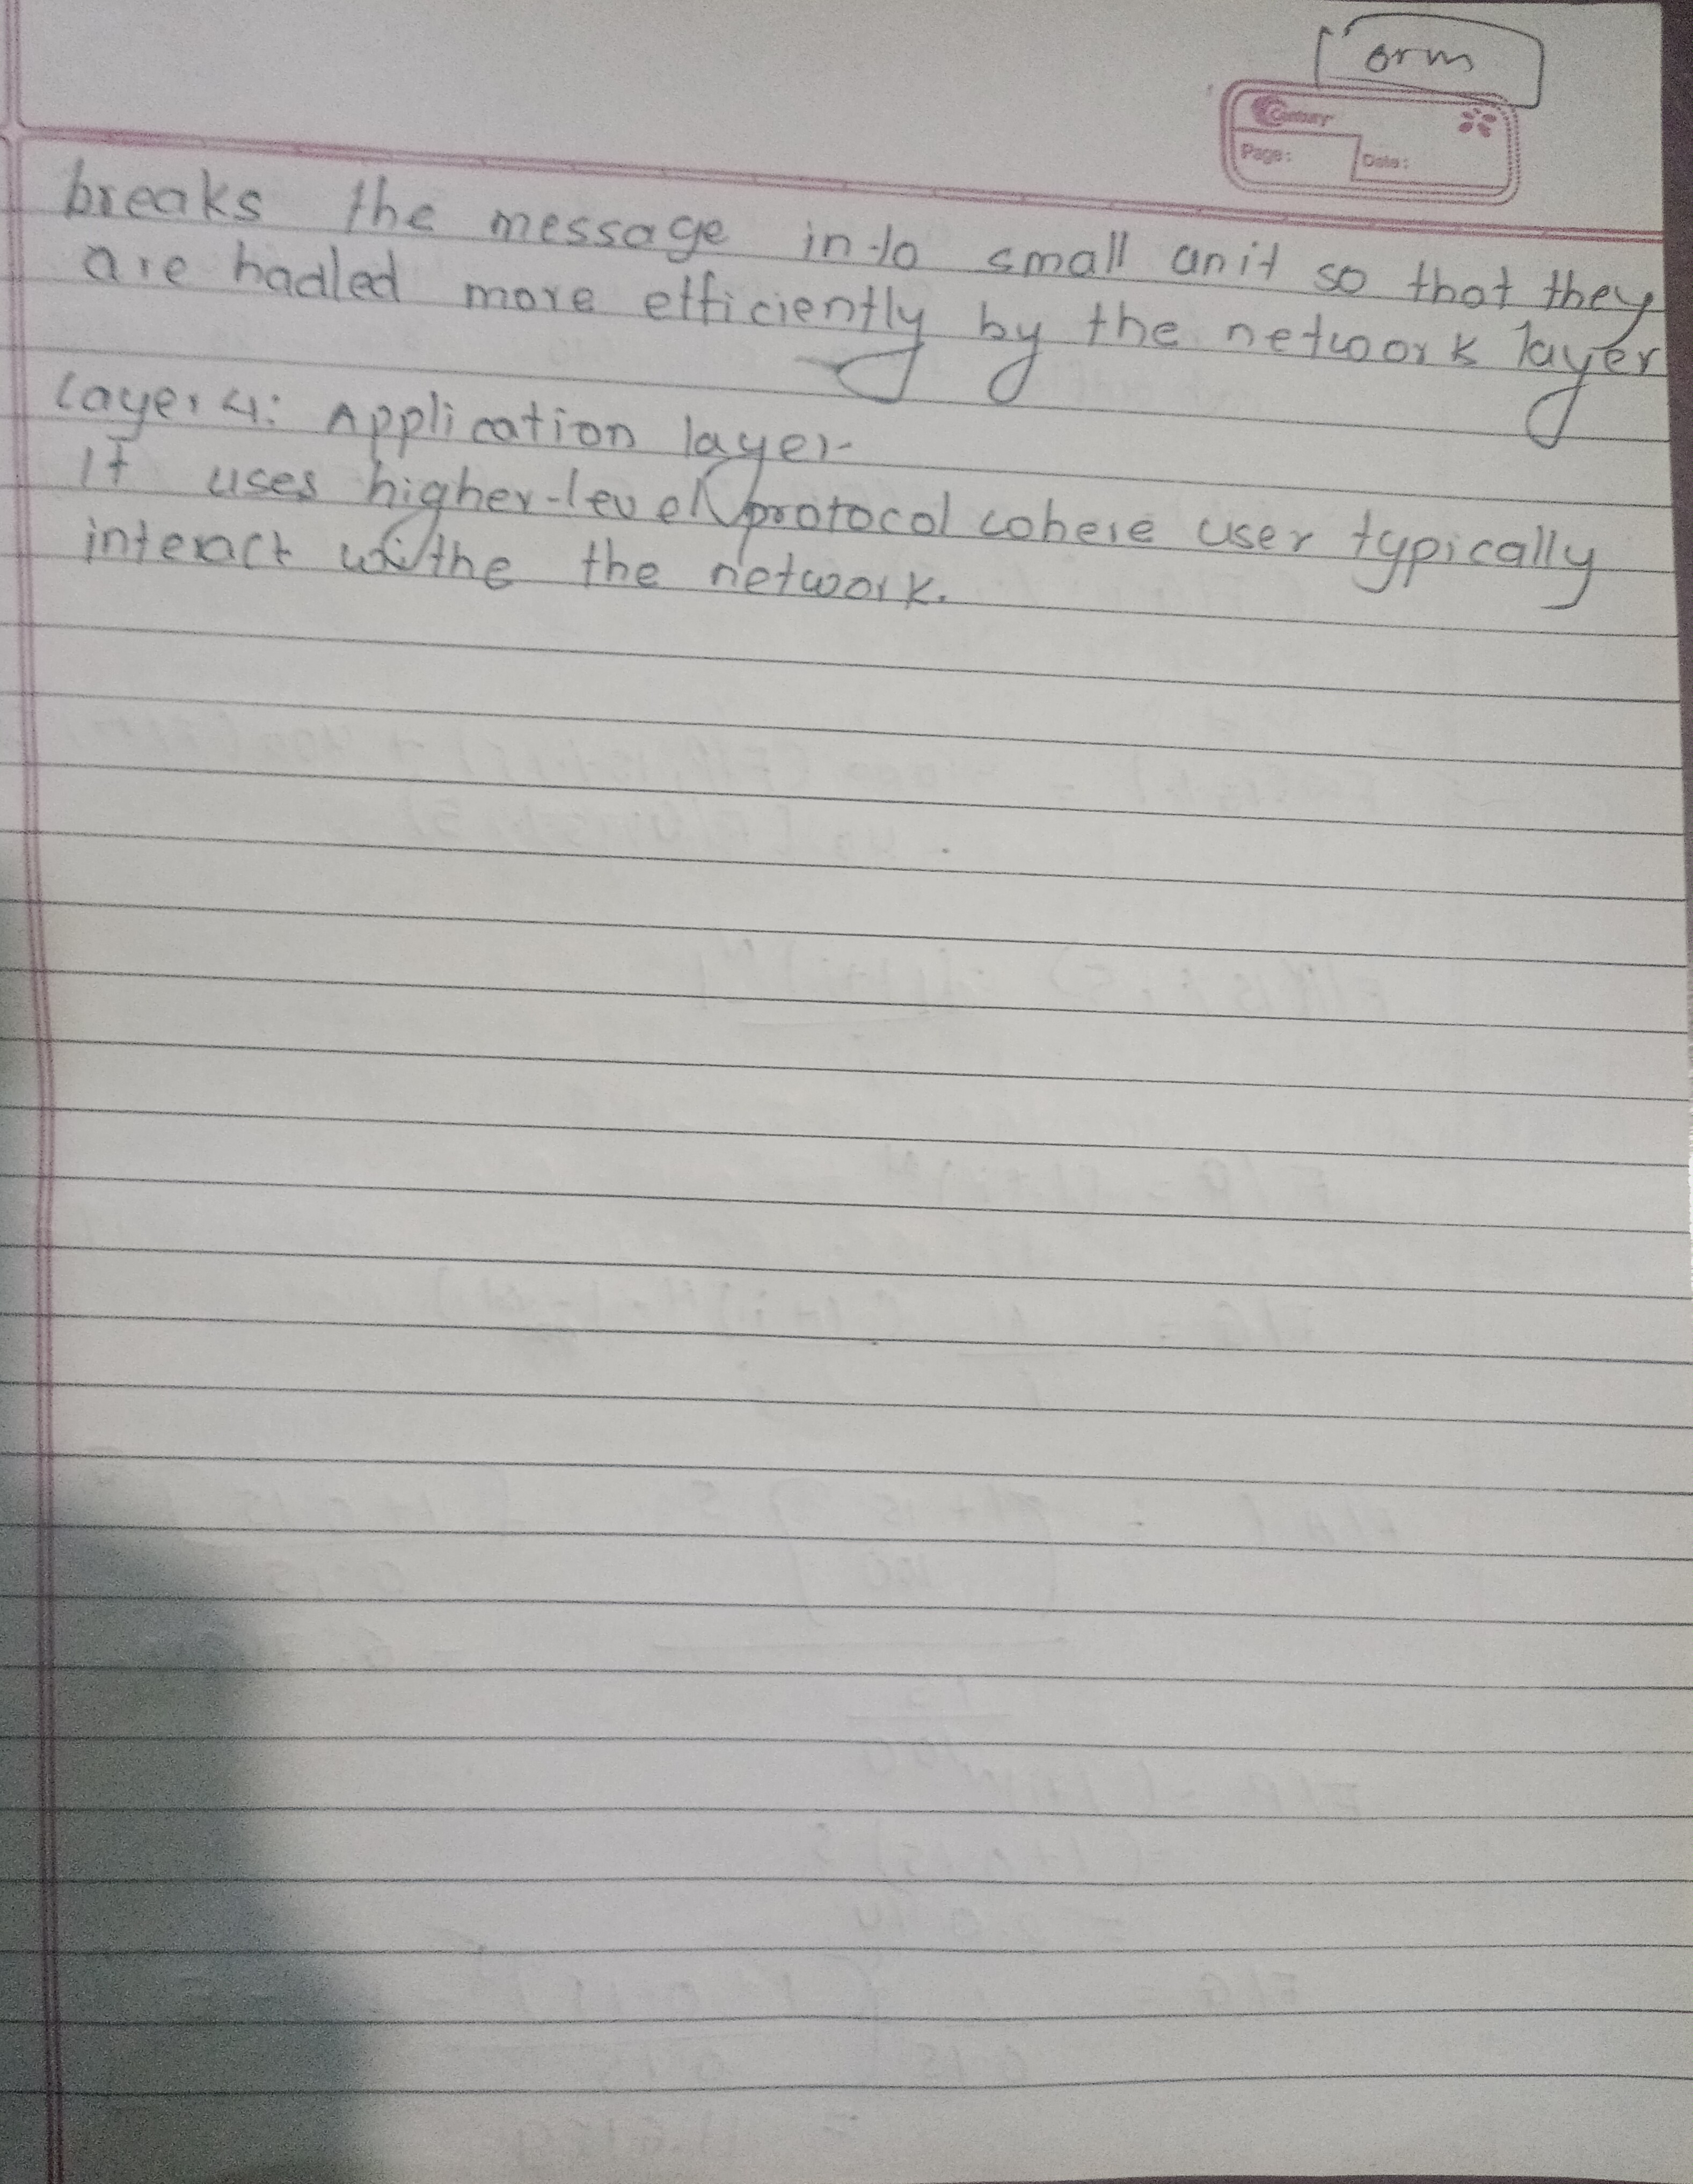 orm
Century
Page:
Date:
breaks the message into small unit so that they
are hadled more efficiently by the network layer
Layer 4: Application layer
It uses higher-level protocol where user typically
interact withe the network.